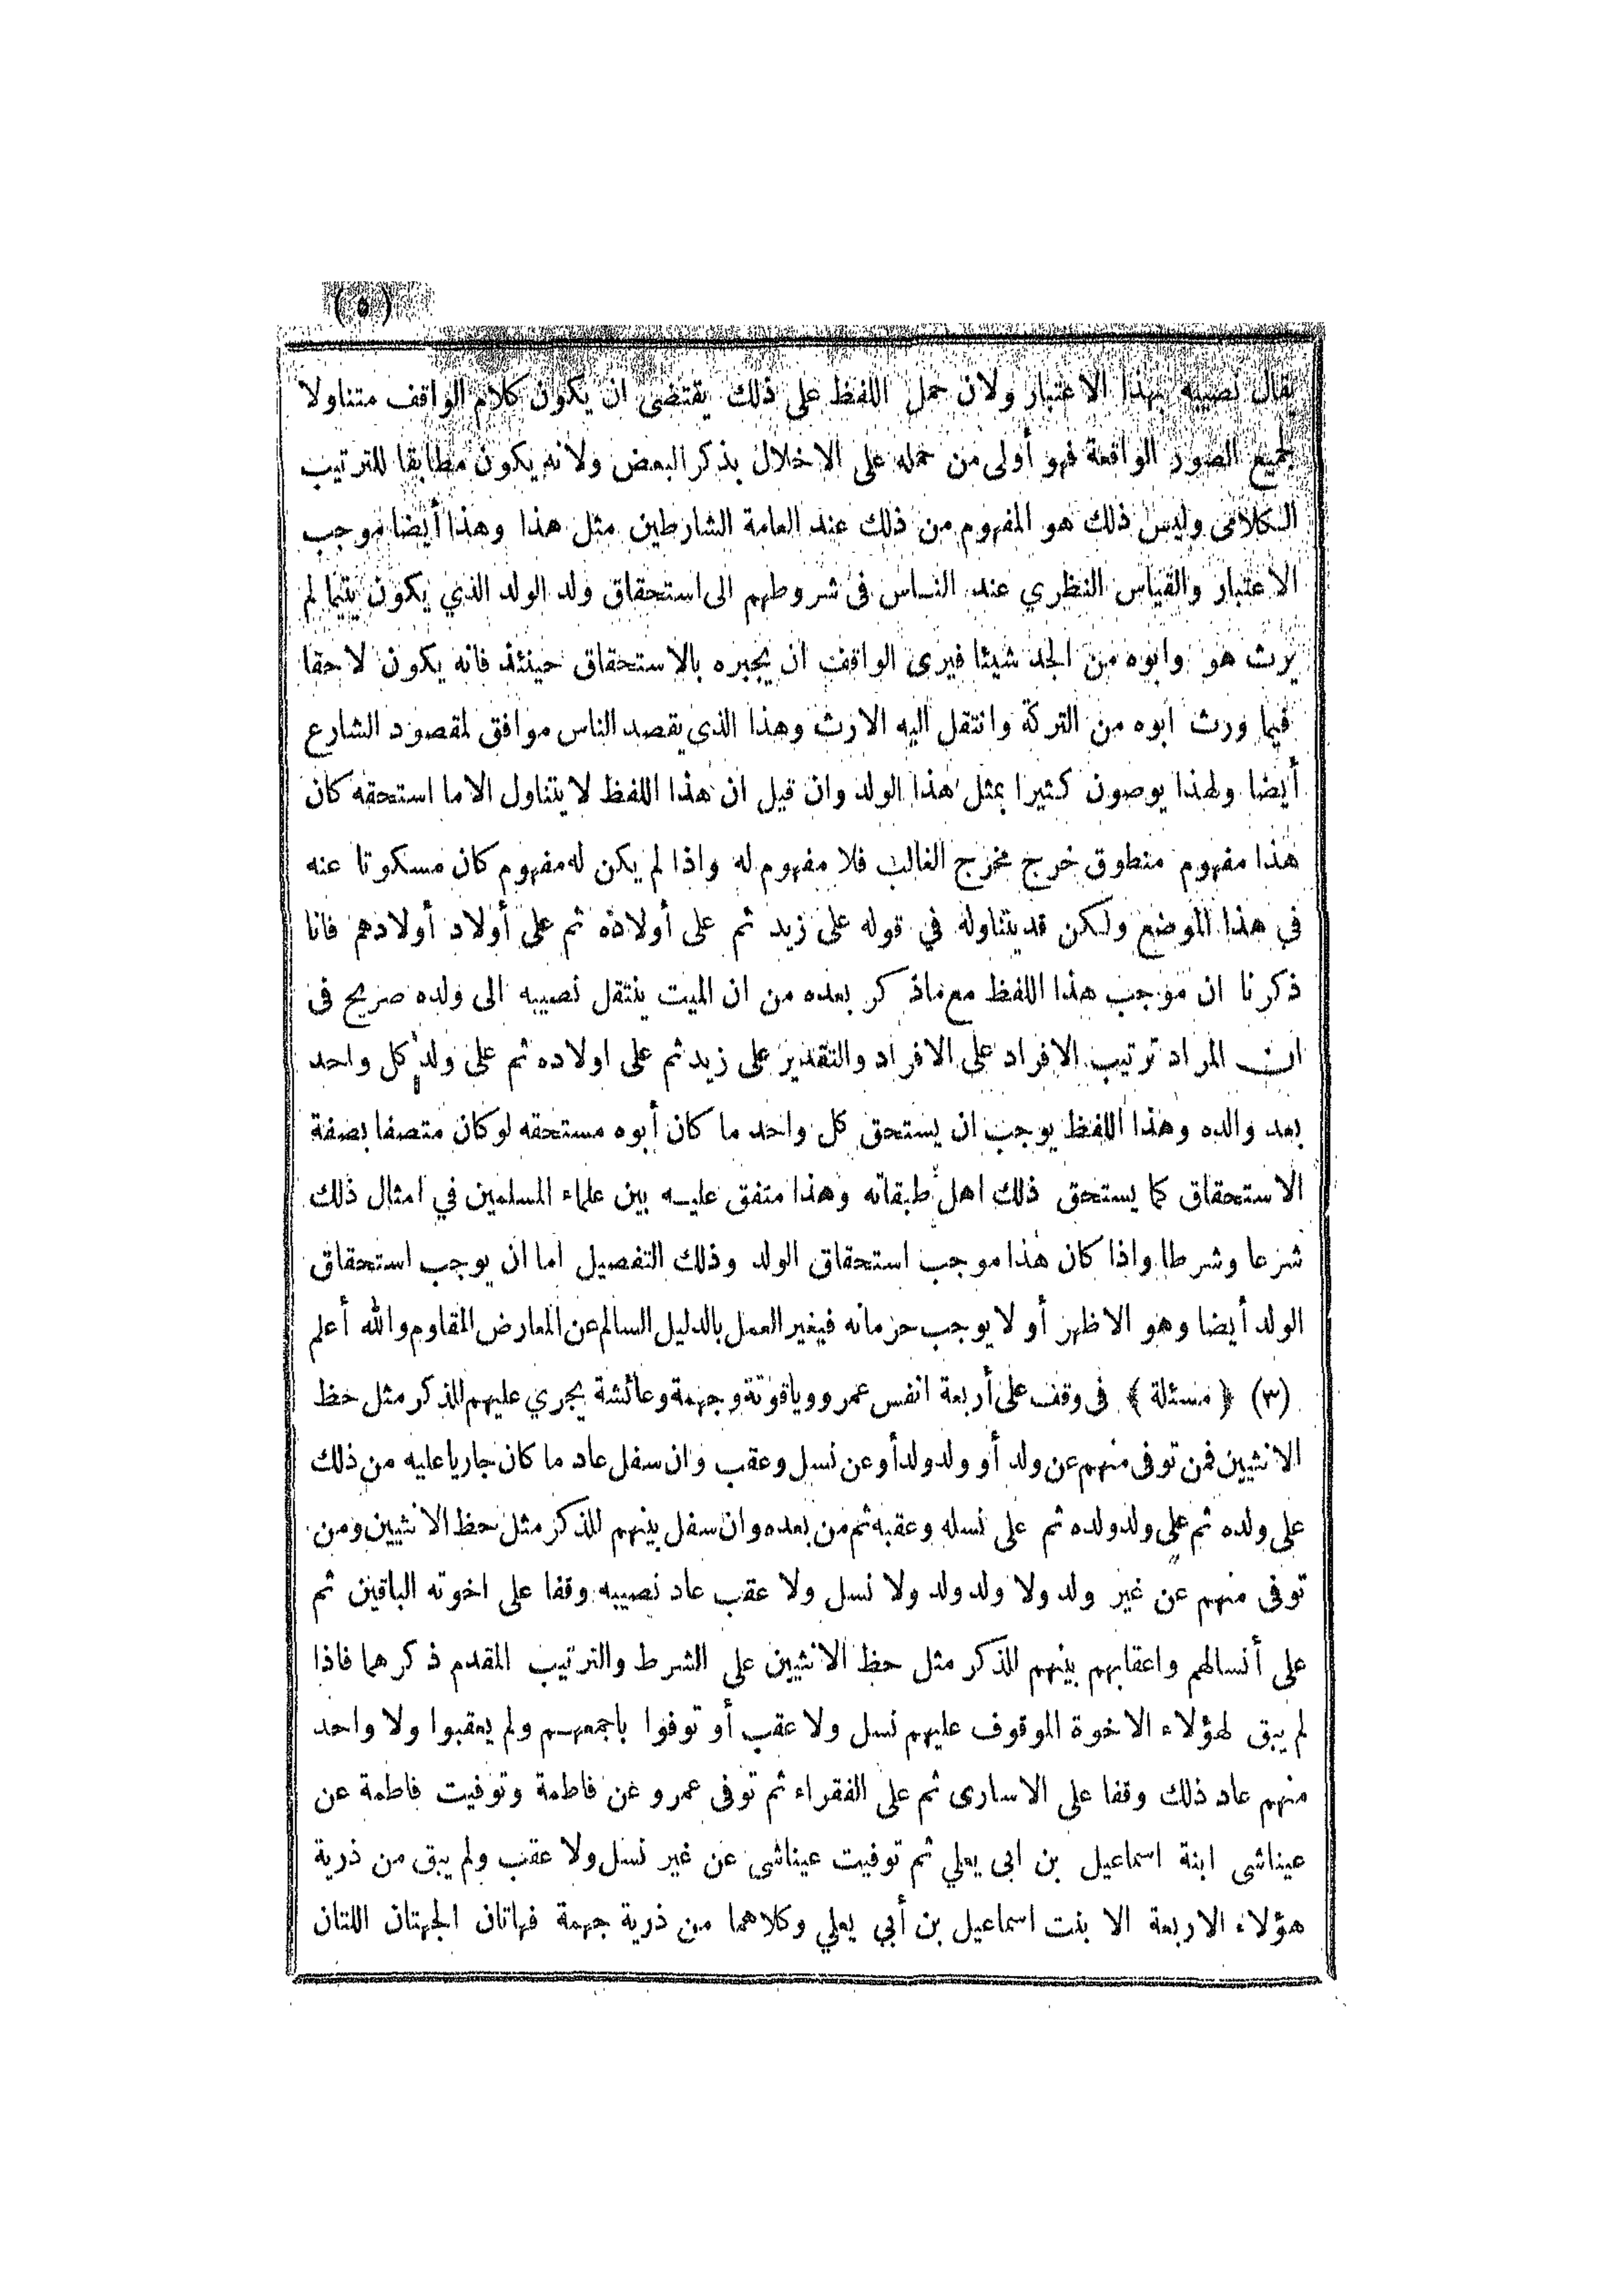 (٥)
يقال نصيبه بهذا الاعتبار ولان حمل اللفظ على ذلك يقتضى ان يكون كلام الواقف متناولا
لجميع الصور الواقعة فهو أولى من حمله على الاخلال بذكر البعض ولانه يكون مطابقا للترتيب
الكلامى وليس ذلك هو المفهوم من ذلك عند العامة الشارطين مثل هذا وهذا أيضا موجب
الاعتبار والقياس النظري عند الناس فى شروطهم الى استحقاق ولد الولد الذي يكون يتيما لم
يرث هو وابوه من الجد شيئا فيرى الواقف ان يجبره بالاستحقاق حينئذ فانه يكون لاحقا
فيما ورث ابوه من التركة وانتقل اليه الارث وهذا الذى يقصد الناس موافق لمقصود الشارع
أيضا ولهذا يوصون كثيرا بمثل هذا الولد وان قيل ان هذا اللفظ لا يتناول الا ما استحقه كان
هذا مفهوم منطوق خرج مخرج الغالب فلا مفهوم له واذا لم يكن له مفهوم كان مسكوتا عنه
في هذا الموضع ولكن قد يتناوله في قوله على زيد ثم على أولاده ثم على أولاد أولادهم فانا
ذكرنا ان موجب هذا اللفظ مع ماذكر بعده من ان الميت ينتقل نصيبه الى ولده صريح فى
ان المراد ترتيب الافراد على الافراد والتقدير على زيد ثم على اولاده ثم على ولد كل واحد
بعد والده وهذا اللفظ يوجب ان يستحق كل واحد ما كان أبوه مستحقه لو كان متصفا بصفة
الاستحقاق كما يستحق ذلك اهل طبقاته وهذا متفق عليه بين علماء المسلمين في امثال ذلك
شرعا وشرطا واذا كان هذا موجب استحقاق الولد وذلك التفصيل اما ان يوجب استحقاق
الولد أيضا وهو الاظهر أو لا يوجب حرمانه فيغير العمل بالدليل السالم عن المعارض المقاوم والله أعلم
(٣) ﴿ مسئلة ﴾ فى وقف على أربعة انفس عمرو وياقوتة وجهمة وعائشة يجري عليهم للذكر مثل حظ
الانثيين فمن توفى منهم عن ولد أو ولد ولد أو عن نسل وعقب وان سفل عاد ما كان جاريا عليه من ذلك
على ولده ثم على ولد ولده ثم على نسله وعقبه ثم من بعده وان سفل بينهم للذكر مثل حظ الانثيين ومن
توفى منهم عن غير ولد ولا ولد ولد ولا نسل ولا عقب عاد نصيبه وقفا على اخوته الباقين ثم
على أنسالهم واعقابهم بينهم للذكر مثل حظ الانثيين على الشرط والترتيب المقدم ذكرهما فاذا
لم يبق لهؤلاء الاخوة الموقوف عليهم نسل ولا عقب أو توفوا باجمعهم ولم يعقبوا ولا واحد
منهم عاد ذلك وقفا على الاسارى ثم على الفقراء ثم توفى عمرو عن فاطمة وتوفيت فاطمة عن
عيناشى ابنة اسماعيل بن ابى يعلي ثم توفيت عيناشى عن غير نسل ولا عقب ولم يبق من ذرية
هؤلاء الاربعة الا بنت اسماعيل بن أبي يعلي وكلاهما من ذرية جهمة فهاتان الجهتان اللتان